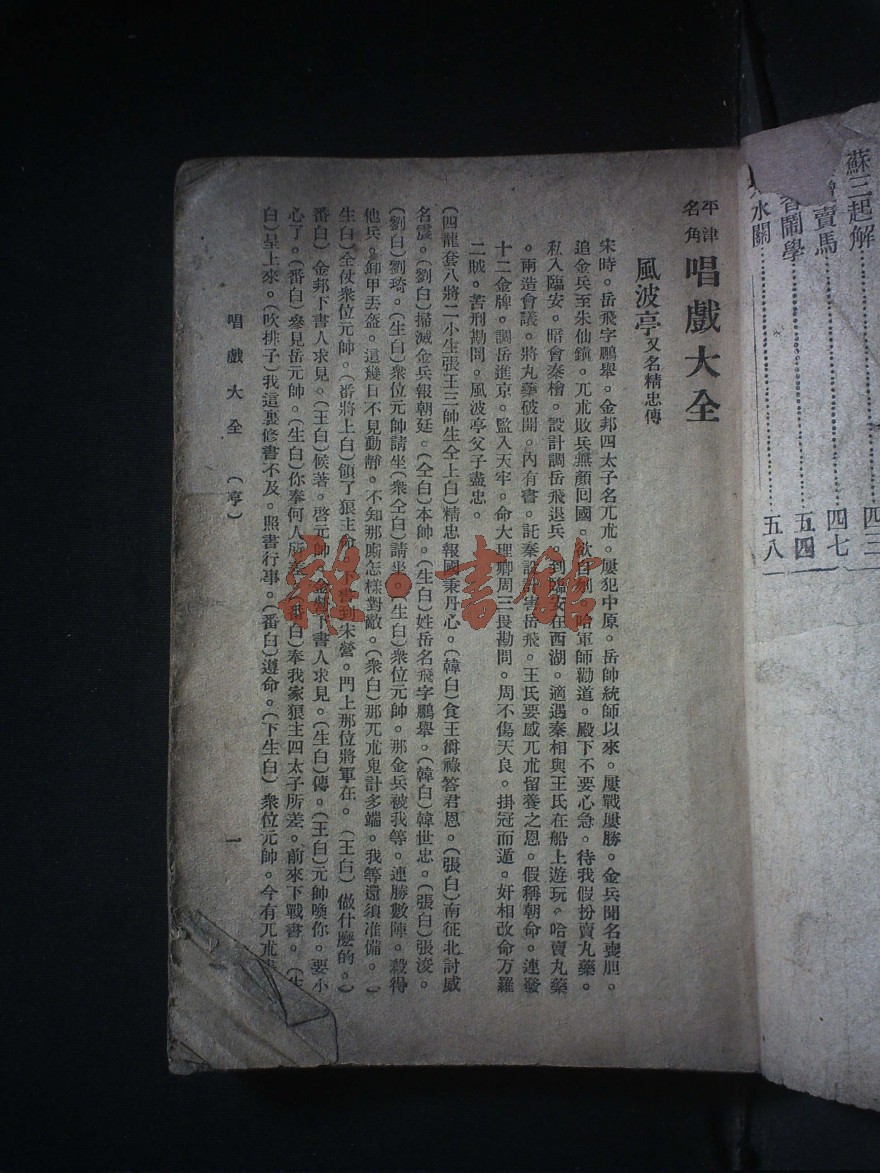 蘇三起解……四三
賣馬……四七
鬧學……五四
水關……五八
平津
名角
唱戲大全
風波亭又名精忠傳
宋時。岳飛字鵬舉。金邦四太子名兀朮。屢犯中原。岳帥統師以來。屢戰屢勝。金兵聞名喪胆。
追金兵至朱仙鎮。兀朮敗兵無顏回國。欲自刎。哈軍師勸道。殿下不要心急。待我假扮賣丸藥。
私入臨安。暗會秦檜。設計調岳飛退兵。到臨安在西湖。適遇秦相與王氏在船上遊玩。哈賣丸藥
。兩造會議。將丸藥破開。內有書。託秦設計害岳飛。王氏要感兀朮留養之恩。假稱朝命。連發
十二金牌。調岳進京。監入天牢。命大理卿周三畏勘問。周不傷天良。掛冠而遁。奸相改命万羅
二賊。苦刑勘問。風波亭父子盡忠。
(四龍套八將二小生張王三師生仝上白)精忠報國秉丹心。(韓白)食王爵祿答君恩。(張白)南征北討威
名震。(劉白)掃滅金兵報朝廷。(仝白)本帥。(生白)姓岳名飛字鵬舉。(韓白)韓世忠。(張白)張浚。
(劉白)劉琦。(生白)衆位元帥請坐(衆仝白)請坐。(生白)衆位元帥。那金兵被我等。連勝數陣。殺得
他兵。卸甲丟盔。這幾日不見動靜。不知那厮怎樣對敵。(衆白)那兀朮鬼計多端。我等還須准備。(
生白)全仗衆位元帥。(番將上白)領了狼主命。下書到宋營。門上那位將軍在。(王白)做什麼的。(
番白)金邦下書人求見。(王白)候著。啓元帥。金營下書人求見。(生白)傳。(王白)元帥喚你。要小
心了。(番白)參見岳元帥。(生白)你奉何人所差。(番白)奉我家狼主四太子所差。前來下戰書。(生
白)呈上來。(吹排子)我這裏修書不及。照書行事。(番白)遵命。(下生白)衆位元帥。今有兀朮
唱戲大全 (亨) 一
雜·書館